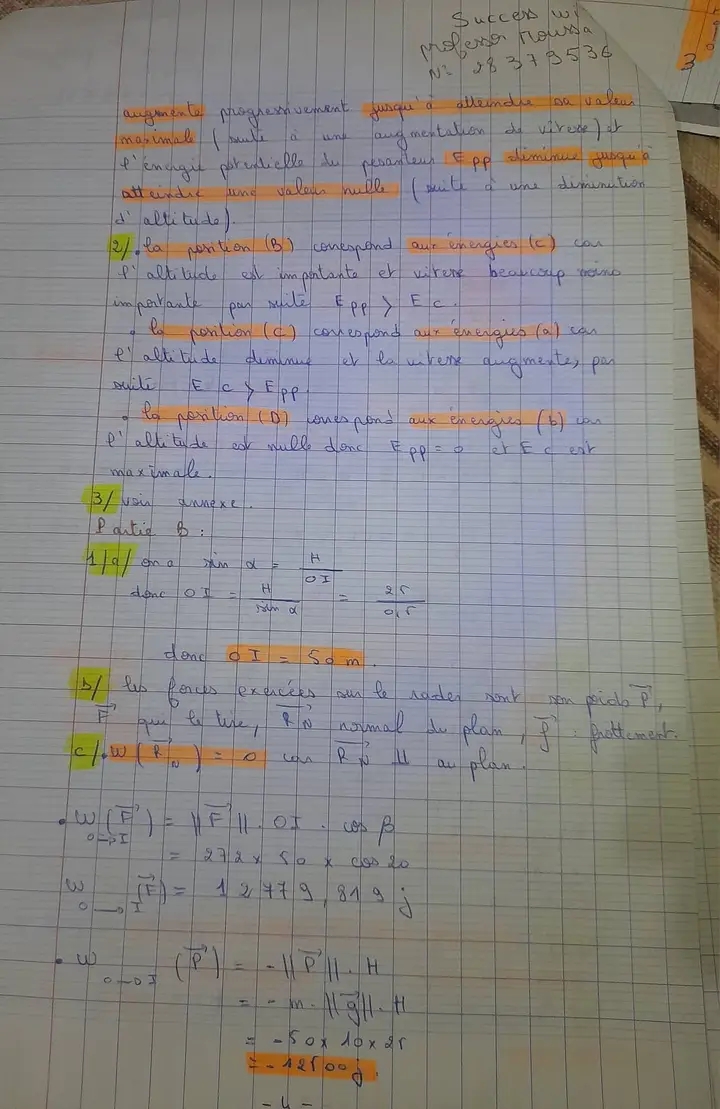 Success wi
professor Moussa
N° 28 379 536
3
augmente progressivement jusqu'à atteindre sa valeur
maximale (suite à une augmentation de vitesse) et
l'énergie potentielle du pesanteur Epp diminue jusqu'à
atteindre une valeur nulle (suite à une diminution
d'altitude).
2/ • la position (B) correspond aux énergies (c) car
l'altitude est importante et vitesse beaucoup moins
importante par suite Epp > Ec.
• la position (C) correspond aux énergies (a) car
l'altitude diminue et la vitesse augmente, par
suite Ec > Epp
• la position (D) correspond aux énergies (b) car
l'altitude est nulle donc Epp = 0 et Ec est
maximale.
3/ voir annexe.
Partie B :
1/a/ on a sin α = H / OI
donc OI = H / sin α = 25 / 0,5
donc OI = 50 m.
b/ les forces exercées sur le rader sont son poids P⃗,
F⃗ qui le tire, R⃗N normal du plan, f⃗ : frottement.
c/ • W(R⃗N) = 0 car R⃗N ⊥ au plan.
• W(F⃗) O→I = ||F⃗|| . OI . cos β
= 272 x 50 x cos 20
W O→I (F⃗) = 12779,819 j
• W O→I (P⃗) = -||P⃗|| . H
= - m . ||g⃗|| . H
= -50 x 10 x 25
= -12500 j.
- 4 -